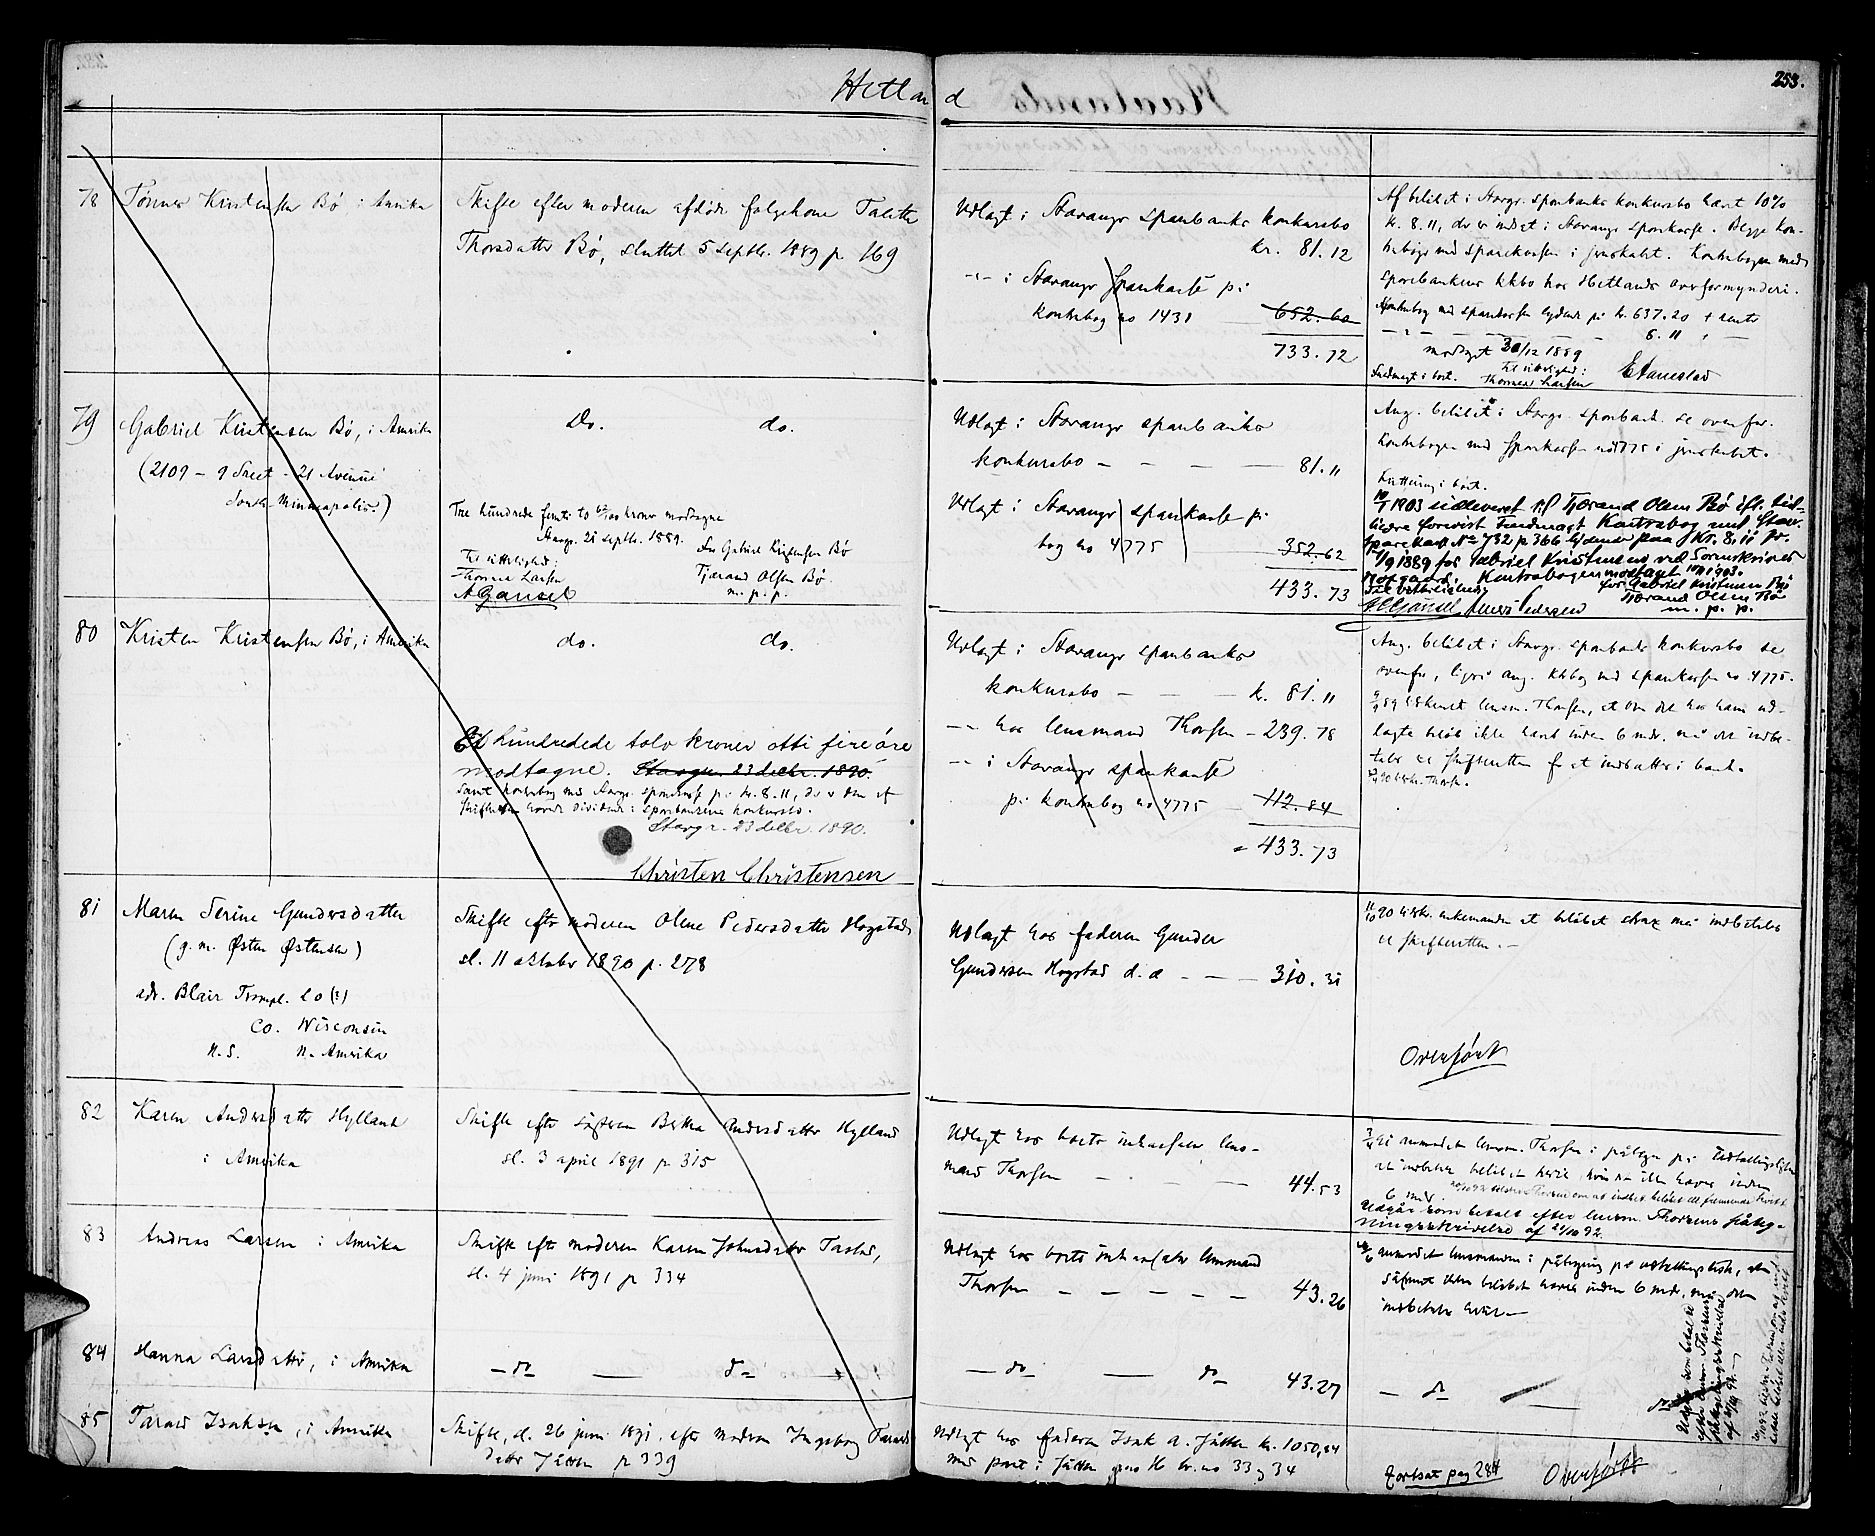 253.
Hetland
78 Tønnes Kristensen Bø i Amrika
Skifte efter moderen afdøde folgekone Talette
Thorsdatter Bø, sluttet 5 septbr. 1889 p 169
Udlagt i Stavangr sparebanks konkursbo
kr. 81.12
-"- i Stavangr Sparekasse på
kontrabog no 1431 652.60
733.72
Af beløbet i Stavgr. sparebanks konkursbo hævet 10%
kr. 8.11, der er indsat i Stavangr sparekasse. Begge kon-
trabøger med sparekassen i jernskabet. Kontrabogen med
sparebankens kkbo hos Hetlands overformynderi.
Kontrabog med sparekassen lydende på kr. 637.20 + rente
8.11
modtaget 30/12 1889
Til vitterlighed:
Fuldmagt i bort. Thomas Larsen
79 Gabriel Kristensen Bø, i Amrika
(2109 – 9 Street – 21 Avenue
South Minneapolis.)
Do. do.
Tre hundrede femti to 62/100 kroner modtagne
Stavgr. 21 septbr. 1889.
Til vitterlighed: For Gabriel Kristensen Bø
Thomas Larsen Tjærand Olsen Bø
A Gansel m. p. p.
Udlagt i Stavangr sparebanks
konkursbo – – – 81.11
Udlagt i Stavangr sparekasse på
bog no 4775 352.62
433.73
Ang. beløbet i Stavgr. sparebank se ovenfor.
Kontrabogen med Sparekassen no 4775 i jernskabet.
10/7 1903 udleveret til Tjærand Olsen Bø ifl. tid-
ligere forevist Fuldmagt Kontrabog med Stav.
Sparekasse No 732 p 366 lydende paa Kr. 8,11 pr.
/9 1889 for Gabriel Kristensen ved Sorenskriver
Kontrabogen modtaget 10/7 1903.
Til vitterlighed for Gabriel Kristensen Bø
Tjærand Olsen Bø
m. p. p.
80 Kristen Kristensen Bø, i Amrika
do. do.
Et hundredede tolv kroner otti fire øre
modtagne. Stavgr. 23 decbr. 1890.
samt kontrabog med Stavgr. sparekasse på kr. 8.11, der er den af
skifteretten hævede dividende i sparebankens konkursbo.
Stavgr. 23 decbr. 1890.
Christen Christensen
Udlagt i Stavangr sparebanks
konkursbo – – – kr. 81.11
-"- hos lensmand Thorsen – 239.78
-"- i Stavangr sparekasse
på kontrabog no 4775 112.84
= 433.73
Ang. beløbet i Stavgr. sparebanks konkursbo se
ovenfor, ligeså ang. kkbog med sparekassen no 4775.
tilkjendt lensm. Thorsen, at om det hos ham ud-
lagte beløb ikke hævet inden 6 mdr. må det indbe-
tales til skifteretten for at indsættes i bank.
81 Maren Serine Gundersdatter
(g. m. Østen Østensen)
adr. Blair Trempl. l o (?)
Co. Wisconsin
N. S. N. Amrika
Skifte eftr moderen Olene Pedersdatter Hogstad
sl. 11 oktober 1890 p. 278
Udlagt hos faderen Gunder
Gundersen Hogstad d. æ – – – 310.31
enkemanden at beløbet strax må indbetales
til skifteretten. –
Overført
82 Karen Andersdatter Hylland
i Amrika
Skifte eftr søsteren Berta Andersdatter Hylland
sl. 3 april 1891 p 315
Udlagt hos boets inkassator lens-
mand Thorsen – – – 44.53
anmodet lensm. Thorsen i påtegn på Udlodningslisten
at indbetale beløbet hertil, hvis det ikke hæves inden
6 mdr.
Udgår som betalt efter lensm. Thorsens påteg-
ningsskrivelse af 21/10 92.
83 Andreas Larsen i Amrika
Skifte eftr moderen Karen Johnsdatr Tasted,
sl. 4 juni 1891 p 334
Udlagt hos boets inkassator lensmand
Thorsen – – – – – 43.26
anmodet lensmanden i påtegning på udlodningslisten, at
såfremt dette beløbet hæves inden 6 mdr., må det
indbetales hertil –
84 Hanna Larsdatter, i Amrika
– do – — do –
– do — do – 43.27
– do — do
Udgår som betalt
efter lensm. Thorsens
påtegningsskrivelse
af 21/10 92. –
85 Tarald Isaksen, i Amrika
Skifte, sl. 26 juni 1891, efter moderen Ingeborg Taralds
datter Jåtten p 339
Udlagt hos faderen Isak A. Jåtten kr. 1050,84
med pant i Jåtten gno 16 br.no 33 og 34
Fortsat pag 284 Overført